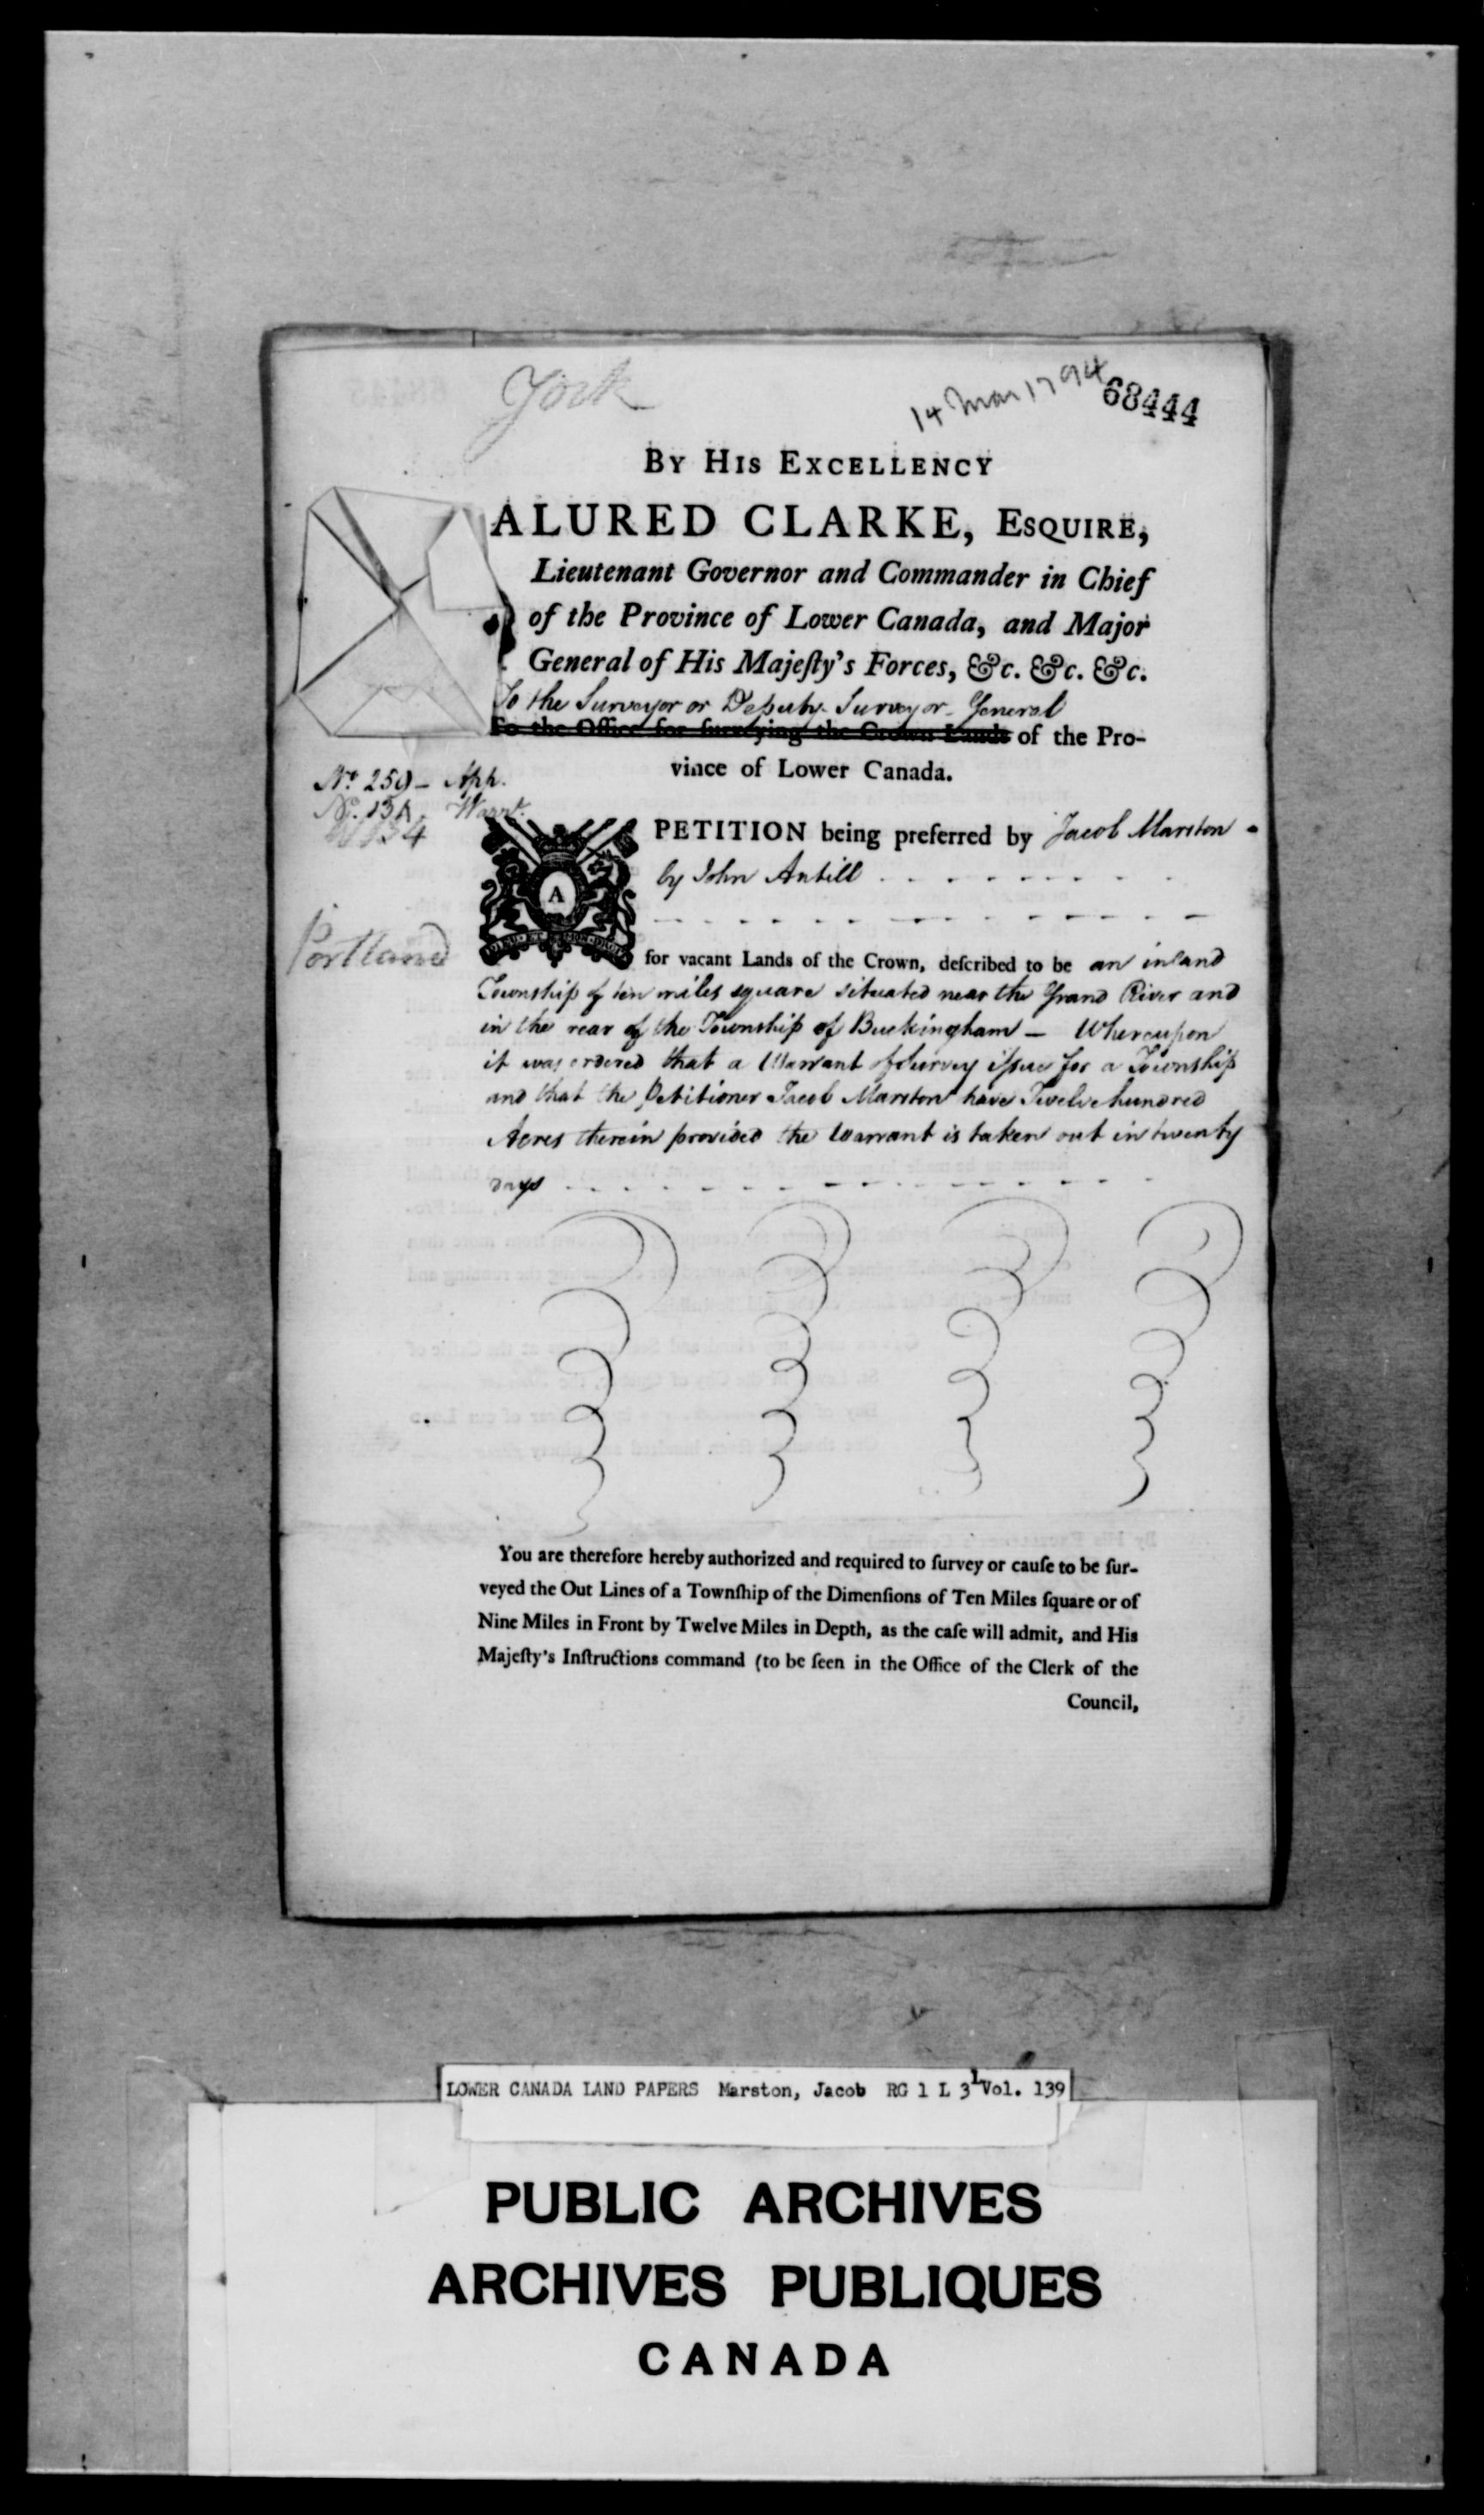 York
14 Mar 1794
68444
BY HIS EXCELLENCY
ALURED CLARKE, ESQUIRE,
Lieutenant Governor and Commander in Chief
of the Province of Lower Canada, and Major
General of His Majeſty's Forces, &c. &c. &c.
To the Surveyor or Deputy Surveyor General
To the Office for ſurveying the Crown Lands of the Pro-
vince of Lower Canada.
No. 259 - App.
No. 134 Warrt.
134
A PETITION being preferred by Jacob Marston
by John Antill
DIEU ET MON DROIT
Portland
for vacant Lands of the Crown, deſcribed to be an inland
Township of ten miles square situated near the Grand River and
in the rear of the Township of Buckingham — Whereupon
it was ordered that a Warrant of Survey iſsue for a Township
and that the Petitioner Jacob Marston have Twelve hundred
Acres therein provided the Warrant is taken out in twenty
days
You are therefore hereby authorized and required to ſurvey or cauſe to be ſur-
veyed the Out Lines of a Townſhip of the Dimenſions of Ten Miles ſquare or of
Nine Miles in Front by Twelve Miles in Depth, as the caſe will admit, and His
Majeſty's Inſtructions command (to be ſeen in the Office of the Clerk of the
Council,
LOWER CANADA LAND PAPERS Marston, Jacob RG 1 L 3L Vol. 139
PUBLIC ARCHIVES
ARCHIVES PUBLIQUES
CANADA